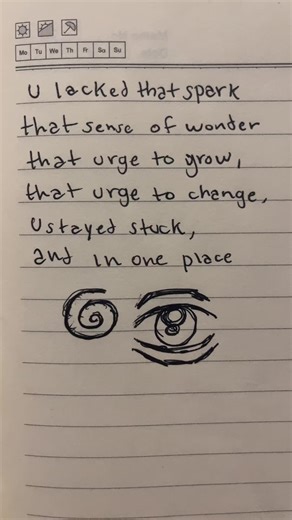 Mo Tu We Th Fr Sa Su
U lacked that spark
that sense of wonder
that urge to grow,
that urge to change,
U stayed stuck,
and in one place